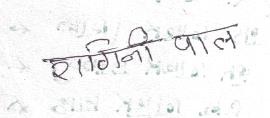 रागिनी पाल